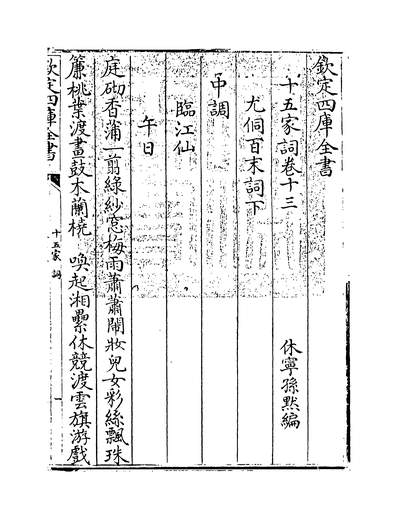 欽定四庫全書
十五家詞卷十三
休寧孫默編
尤侗百末詞下
中調
臨江仙
午日
庭砌香蒲一剪綠紗窓梅雨蕭蕭鬧妝兒女彩絲飄珠
簾桃葉渡畫鼓木蘭橈　喚起湘纍休競渡雲旗游戲
欽定四庫全書
十五家詞
一